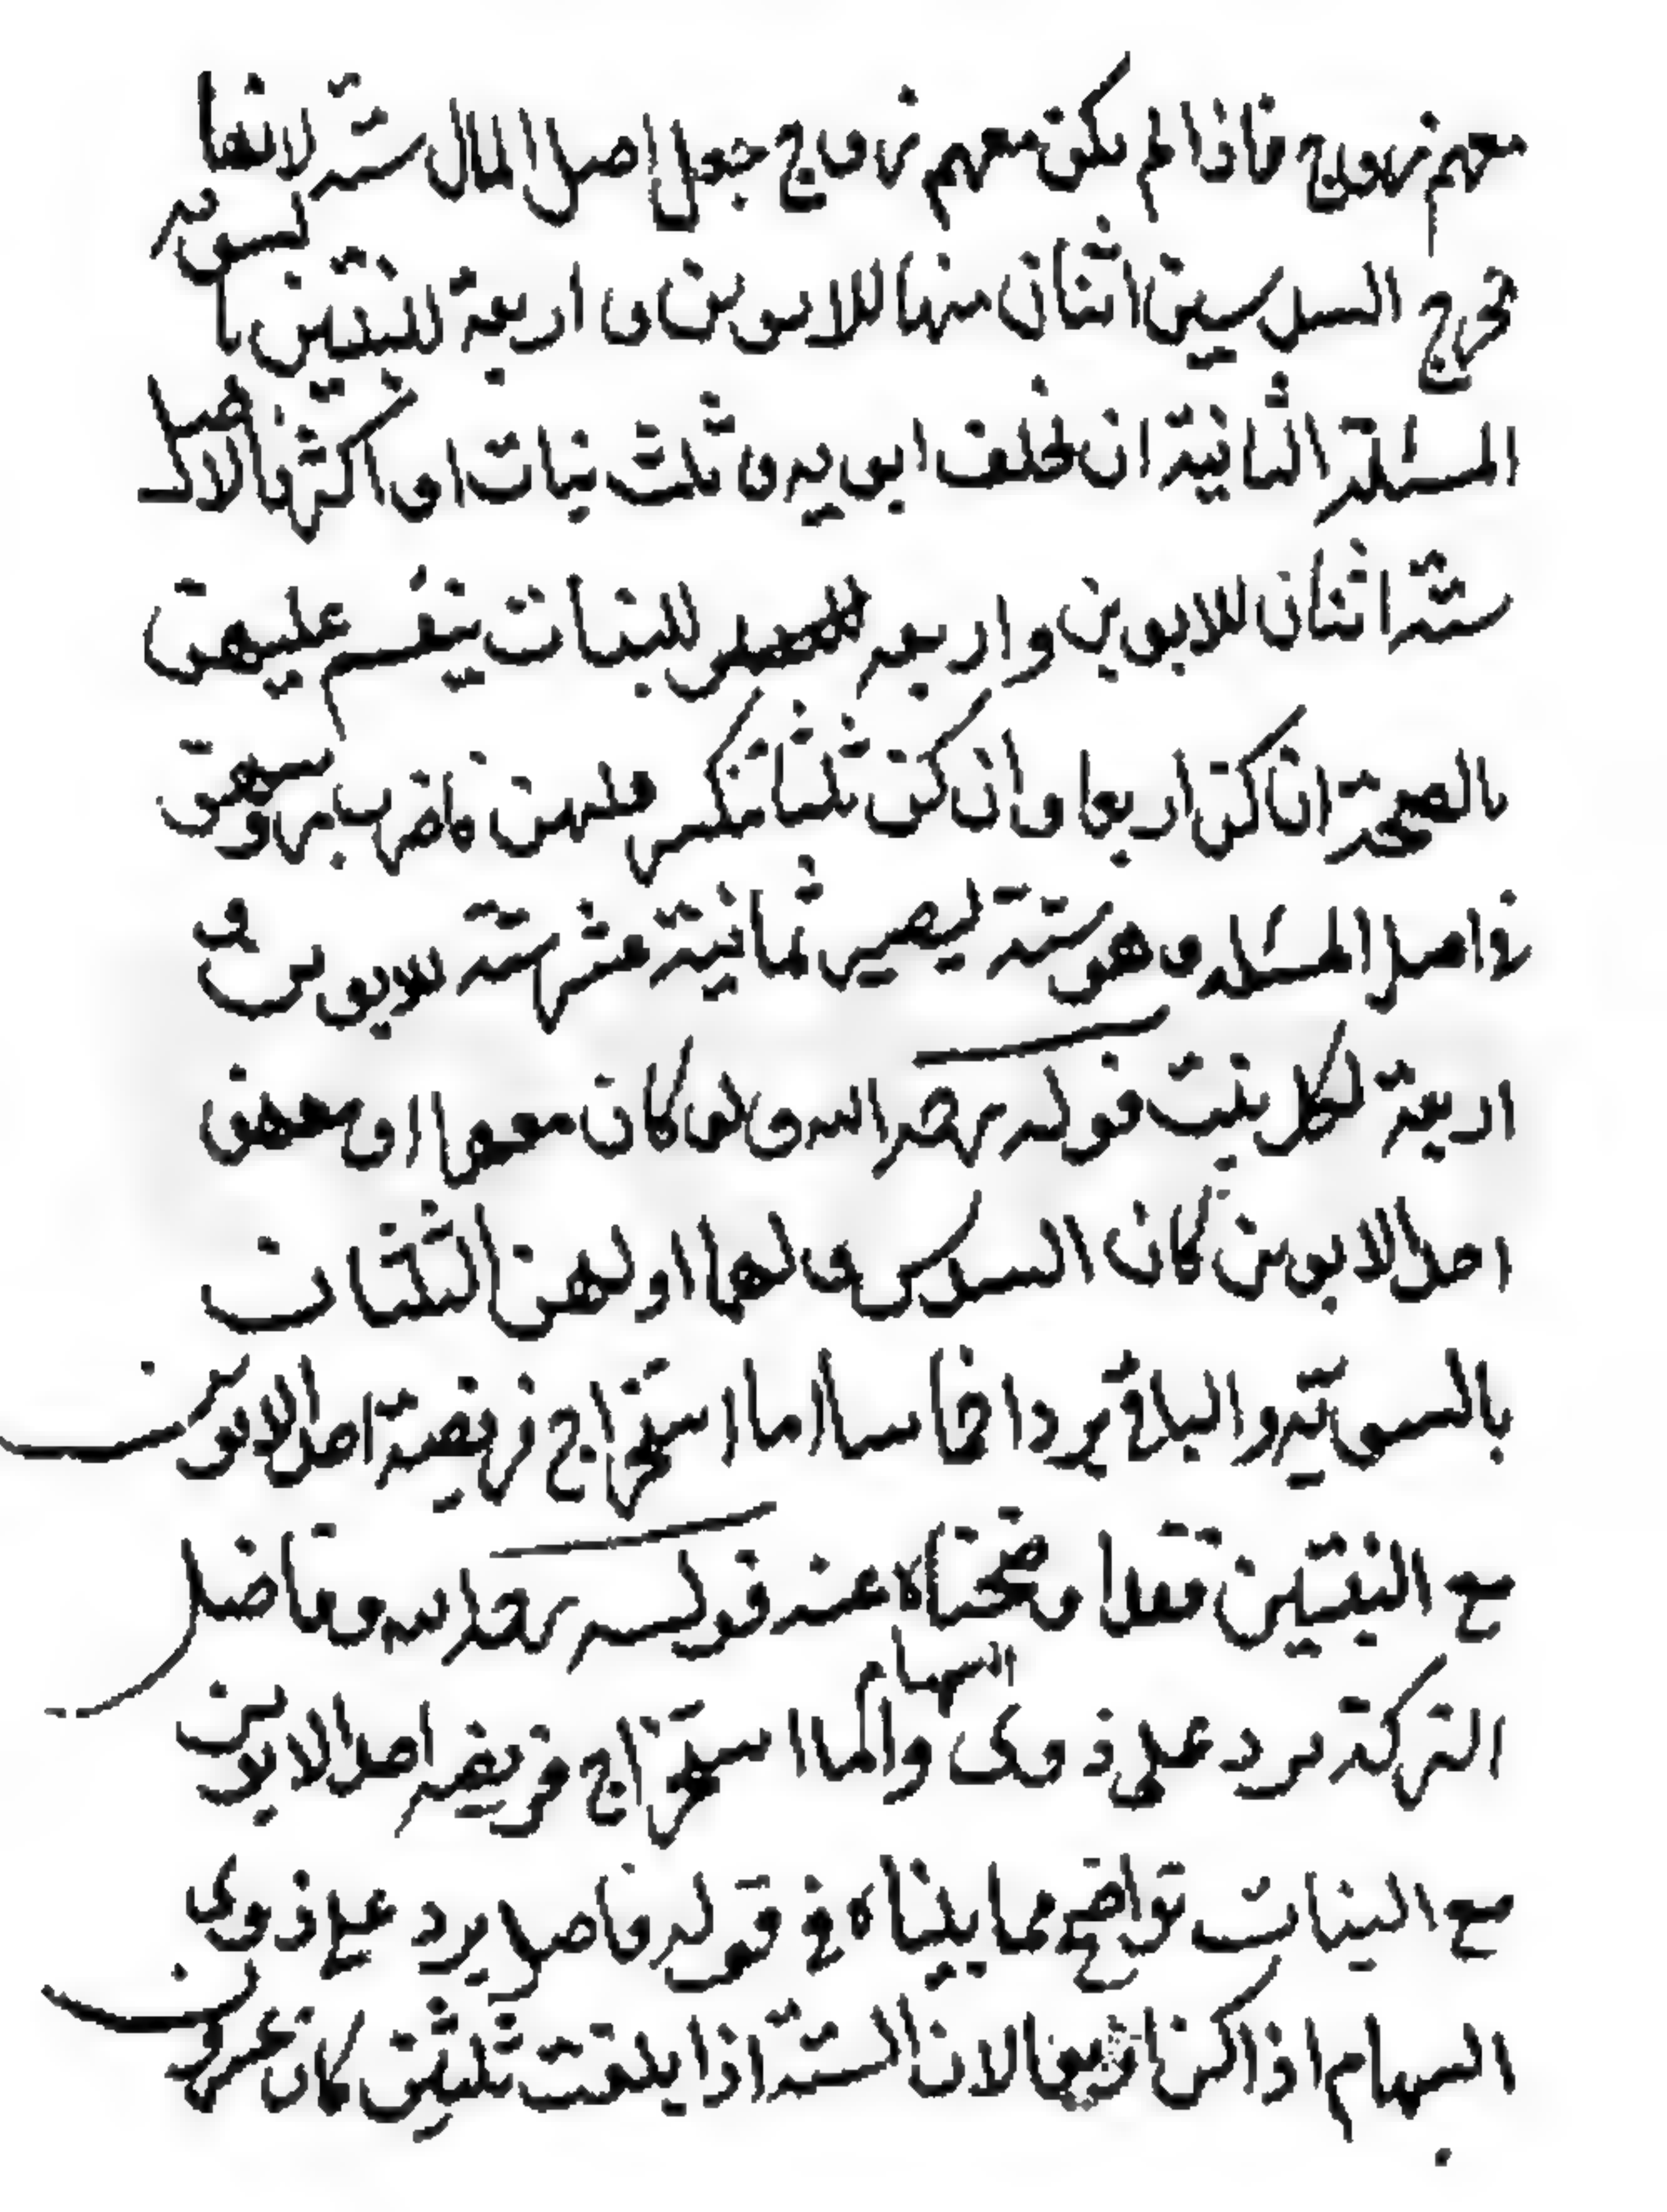 معهم زووج فاذا لم يكن معهم زووج جعل اصل المال ستة لانها
تخرج السدسين اثنان منها للابوين و اربعة للبنتين بالسوية
المسئلة الثانية ان يخلف ابويه و ثلث بنات او اكثر فالاصل
ستة اثنان للابوين و اربعة للبنات ينقسم عليهن
بالصحة ان كن اربعا و ان كن ثلثا تنكسر فلهن فاضرب رؤسهن
في اصل المسئلة و هو ستة ليصير ثمانية عشر ستة للابوين و
اربعة لكل بنت قوله رحمه الله و لو كان معهما او معهن
احد الابوين كان السدس و لهما او لهن الثلثان
بالسوية و الباقي يرد اخماسا اما استخراج فريضة احد الابوين
مع البنتين فقد اوضحناه عند قوله رحمه الله و فاضل
التركة يرد على ذوى السهام و اما استخراج فريضة احد الابوين
مع البنات تواضح مما بيناه في قوله فاضل يرد على ذوى
السهام اذا كن اربعا لان الستة اذا بلغت ثلثين كان عشرون